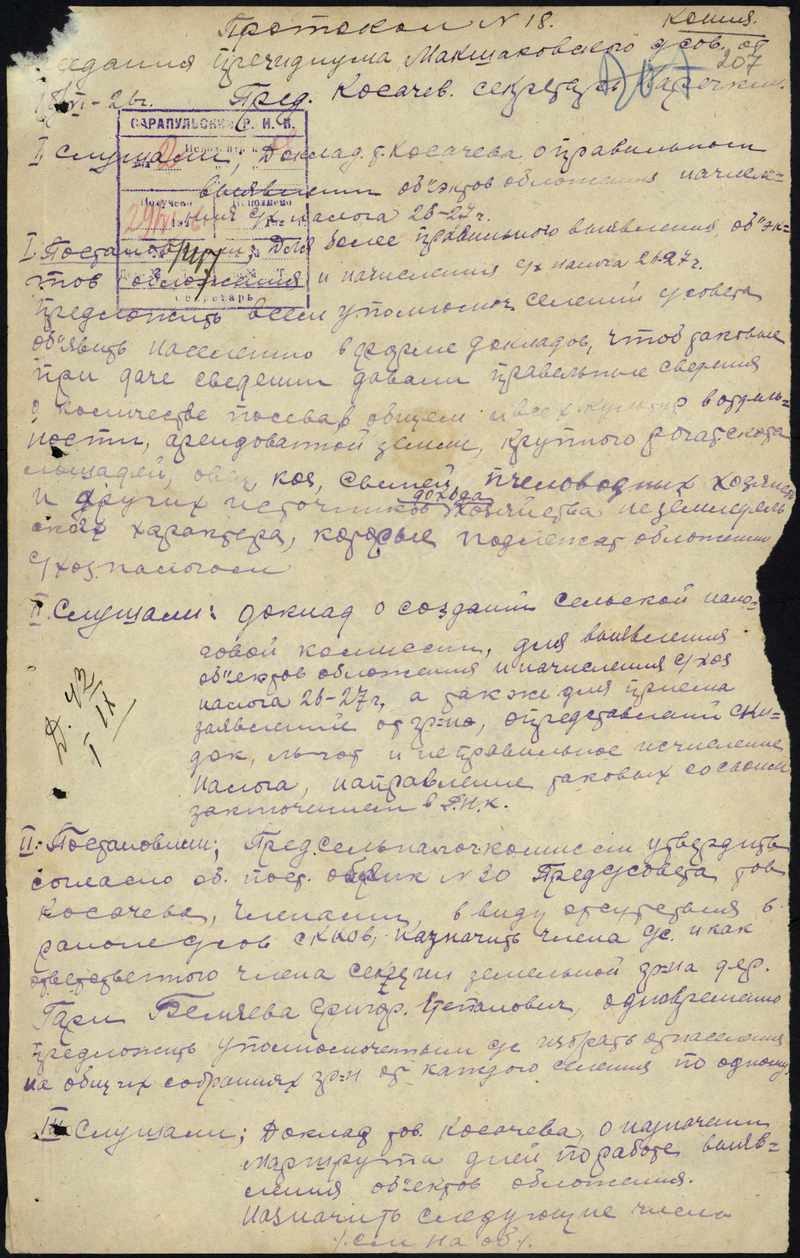 Копия.
Протокол N 18.
заседания президиума Макшаковского с/сов. от
207
18/VI-26г. Пред. Косачев. секретарь
САРАПУЛЬСКИЙ Р. И. К.
Получено Исполнено
29/VI
секретарь
I Слушали; Доклад т. Косачева о правильном
выявлении об"эктов обложения и начисле-
ния с/х налога 26-27г.
I Постановили; Для более правильного выявления об"эк-
тов обложения и начисления с/х налога 26-27г.
предложить всем уполномоч. селений с/совета
об'явить населению в форме докладов, чтоб таковые
при даче сведений давали правельные сведения
о количестве посева в общем и всех культур в отдель-
ности, арендованной земли, крупного рогат. скота
лошадей, овец, коз, свиней, пчеловодных хозяйств
и других источников дохода хозяйства неземледель-
ского характера, которые подлежат обложению
с/хоз. налогом
II Слушали: доклад о создании сельской нало-
говой комиссии, для выявления
об"ектов обложения и начисления с/хоз
налога 26-27г, а также для приема
заявлений от гр-но, о представлении ски-
док, льгот и неправильное исчисление
налога, направление таковых со своим
заключением в Р.Н.К.
Д. 42
I IX
II. Постановили; Пред. сельналогкомиссии утвердить
согласно об. пост. N 20 Предс/совета тов
Косачева, Членами, в виду отсутствия в
районе с/сов ККОВ, назначить члена с/с. и как
ответственного члена секции земельной гр-на дер.
Гари Беляева Григор. Степанович, одновременно
предложить уполномоченным с/с избрать от населения
на общих собраниях гр-н от каждого селения по одному
III Слушали; Доклад тов. Косачева, о назначении
маршрута дней по работе выяв-
ления об"ектов обложения.
Назначить следующие числа
/см на об/.